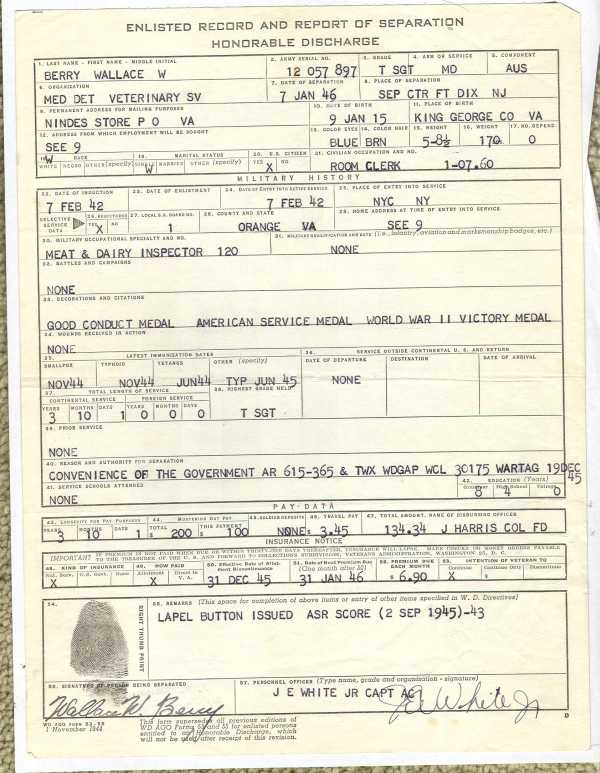 ENLISTED RECORD AND REPORT OF SEPARATION
HONORABLE DISCHARGE
1. LAST NAME - FIRST NAME - MIDDLE INITIAL 2. ARMY SERIAL NO. 3. GRADE 4. ARM OR SERVICE 5. COMPONENT
BERRY WALLACE W 12 057 897 T SGT MD AUS
6. ORGANIZATION 7. DATE OF SEPARATION 8. PLACE OF SEPARATION
MED DET VETERINARY SV 7 JAN 46 SEP CTR FT DIX NJ
9. PERMANENT ADDRESS FOR MAILING PURPOSES 10. DATE OF BIRTH 11. PLACE OF BIRTH
NINDES STORE P O VA 9 JAN 15 KING GEORGE CO VA
12. ADDRESS FROM WHICH EMPLOYMENT WILL BE SOUGHT 13. COLOR EYES 14. COLOR HAIR 15. HEIGHT 16. WEIGHT 17. NO. DEPEND.
SEE 9 BLUE BRN 5-8½ 170 0
18. RACE 19. MARITAL STATUS 20. U.S. CITIZEN 21. CIVILIAN OCCUPATION AND NO.
WHITE NEGRO OTHER (specify) SINGLE MARRIED OTHER (specify) YES NO
W W X ROOM CLERK 1-07.60
MILITARY HISTORY
22. DATE OF INDUCTION 23. DATE OF ENLISTMENT 24. DATE OF ENTRY INTO ACTIVE SERVICE 25. PLACE OF ENTRY INTO SERVICE
7 FEB 42 7 FEB 42 NYC NY
SELECTIVE SERVICE DATA 26. REGISTERED YES NO 27. LOCAL S.S. BOARD NO. 28. COUNTY AND STATE 29. HOME ADDRESS AT TIME OF ENTRY INTO SERVICE
X 1 ORANGE VA SEE 9
30. MILITARY OCCUPATIONAL SPECIALTY AND NO. 31. MILITARY QUALIFICATION AND DATE (i.e., infantry, aviation and marksmanship badges, etc.)
MEAT & DAIRY INSPECTOR 120 NONE
32. BATTLES AND CAMPAIGNS
NONE
33. DECORATIONS AND CITATIONS
GOOD CONDUCT MEDAL AMERICAN SERVICE MEDAL WORLD WAR II VICTORY MEDAL
34. WOUNDS RECEIVED IN ACTION
NONE
35. LATEST IMMUNIZATION DATES 36. SERVICE OUTSIDE CONTINENTAL U. S. AND RETURN
SMALLPOX TYPHOID TETANUS OTHER (specify) DATE OF DEPARTURE DESTINATION DATE OF ARRIVAL
NOV44 NOV44 JUN44 TYP JUN 45 NONE
37. TOTAL LENGTH OF SERVICE 38. HIGHEST GRADE HELD
CONTINENTAL SERVICE FOREIGN SERVICE
YEARS MONTHS DAYS YEARS MONTHS DAYS
3 10 1 0 0 0 T SGT
39. PRIOR SERVICE
NONE
40. REASON AND AUTHORITY FOR SEPARATION
CONVENIENCE OF THE GOVERNMENT AR 615-365 & TWX WDGAP WCL 30175 WARTAG 19DEC 45
41. SERVICE SCHOOLS ATTENDED 42. EDUCATION (Years)
Grammar High School College
NONE 8 4 0
PAY DATA
43. LONGEVITY FOR PAY PURPOSES 44. MUSTERING OUT PAY 45. SOLDIER DEPOSITS 46. TRAVEL PAY 47. TOTAL AMOUNT, NAME OF DISBURSING OFFICER
YEARS MONTHS DAYS TOTAL THIS PAYMENT
3 10 1 $ 200 $ 100 NONE 3.45 134.34 J HARRIS COL FD
INSURANCE NOTICE
IMPORTANT IF PREMIUM IS NOT PAID WHEN DUE OR WITHIN THIRTY-ONE DAYS THEREAFTER, INSURANCE WILL LAPSE. MAKE CHECKS OR MONEY ORDERS PAYABLE
TO THE TREASURER OF THE U. S. AND FORWARD TO COLLECTIONS SUBDIVISION, VETERANS ADMINISTRATION, WASHINGTON 25, D. C.
48. KIND OF INSURANCE 49. HOW PAID 50. Effective Date of Allotment Discontinuance 51. Date of Next Premium Due (One month after 50) 52. PREMIUM DUE EACH MONTH 53. INTENTION OF VETERAN TO
Nat. Serv. U.S. Govt. None Allotment Direct to V. A. Continue Continue Only Discontinue
X X 31 DEC 45 31 JAN 46 $ 6.90 X $
54. 55. REMARKS (This space for completion of above items or entry of other items specified in W. D. Directives)
RIGHT THUMB PRINT
LAPEL BUTTON ISSUED ASR SCORE (2 SEP 1945)-43
56. SIGNATURE OF PERSON BEING SEPARATED 57. PERSONNEL OFFICER (Type name, grade and organization - signature)
Wallace W Berry J E WHITE JR CAPT AC J E White Jr
WD AGO FORM 53-55
1 November 1944
This form supersedes all previous editions of
WD AGO Forms 53 and 55 for enlisted persons
entitled to an Honorable Discharge, which
will not be used after receipt of this revision.
D